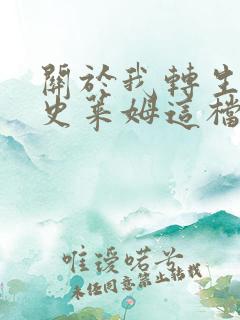 關於我轉生
史萊姆這檔
唯瑷喏兮
未经同意禁止转载